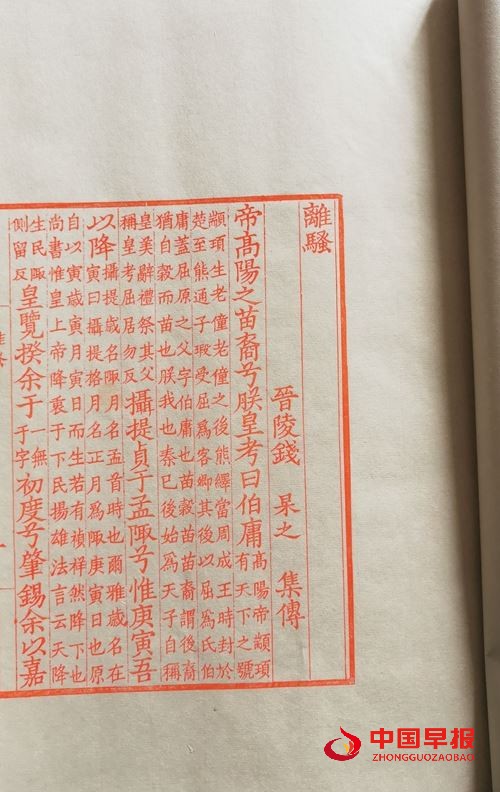 離騷
晉陵錢 杲之 集傳
帝髙陽之苗裔兮朕皇考曰伯庸髙陽帝顓頊有天下之號
顓頊生老僮老僮之後熊繹當周成王時封於
楚至熊通子瑕受屈爲客卿其後以屈爲氏伯
庸蓋屈原之父字伯庸也苗穀苗苗裔謂後裔
猶自穀而苗也朕我也秦巳後始爲天子自稱
皇美辭禮祭其父稱皇考屈居勿反攝提貞于孟陬兮惟庚寅吾
以降攝提歲名陬月名孟音時也爾雅歲名在寅曰攝提格月名正月爲陬庚寅日也原
自以寅歲寅月寅日而生若有禎祥然降下也
尚書惟皇上帝降衷于下民揚雄法言云天降
生民陬側留反皇覽揆余于一無于字初度兮肇錫余以嘉
中国早报
ZHONGGUOZAOBAO